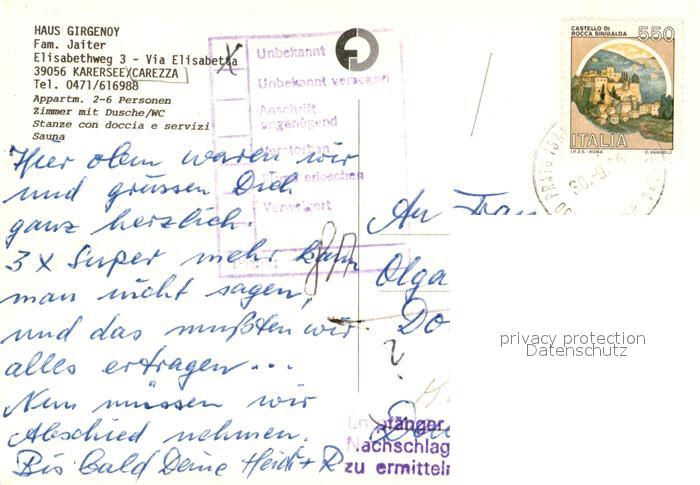 HAUS GIRGENOY
Fam. Jaiter
Elisabethweg 3 - Via Elisabetta
39056 KARERSEE(CAREZZA
Tel. 0471/616988
Appartm. 2-6 Personen
Zimmer mit Dusche/WC
Stanze con doccia e servizi
Sauna
Hier oben waren wir
und grüssen Dich
ganz herzlich.
3 x Super mehr kann
man nicht sagen,
und das mußten wir
alles ertragen...
Nun müssen wir
Abschied nehmen.
Bis bald Deine Heidi + R
X Unbekannt
Unbekannt verzogen
Anschrift
ungenügend
Verstorben
erloschen
Verweigert
CASTELLO DI
ROCCA SINIBALDA
550
ITALIA
I.P.Z.S. - ROMA
E. VANGELLI
30.9.
An Frau
Olga
Do
?
Empfänger
Nachschlag
zu ermitteln
privacy protection
Datenschutz